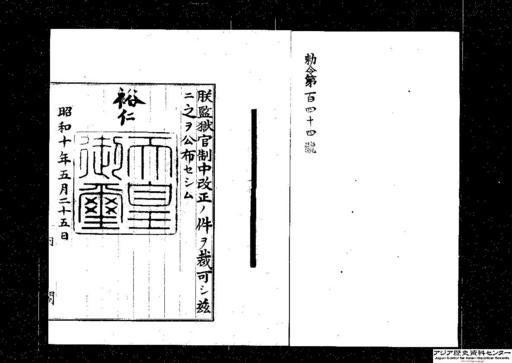 勅令第百四十四號
朕監獄官制中改正ノ件ヲ裁可シ玆
ニ之ヲ公布セシム
裕仁
天皇御璽
昭和十年五月二十五日
内閣
アジア歴史資料センター
Japan Center for Asian Historical Records